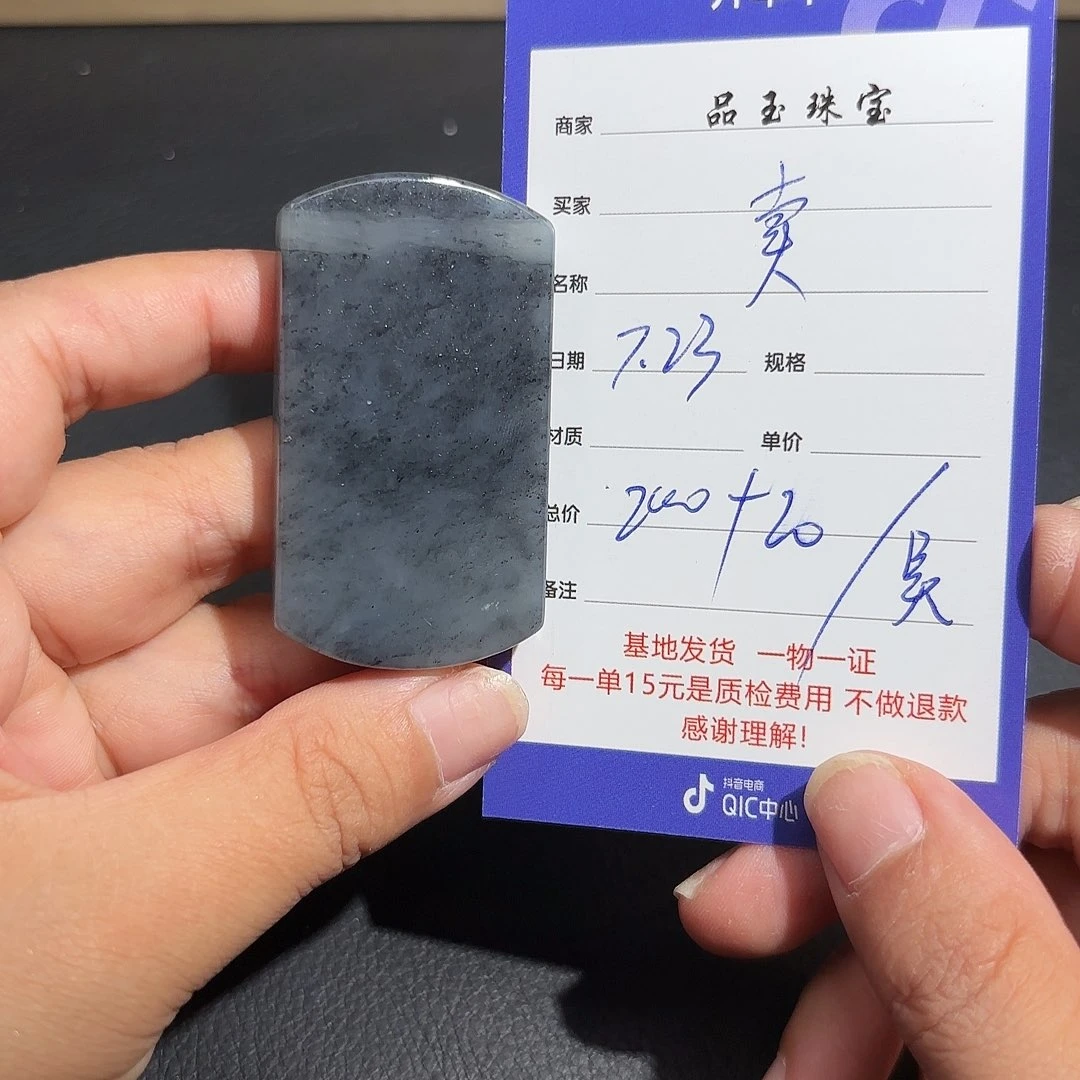 商家 品玉珠宝
买家 卖
名称
日期 7.23 规格
材质 单价
总价 2000+20/吴
备注
基地发货 一物一证
每一单15元是质检费用 不做退款
感谢理解!
抖音电商
QIC中心